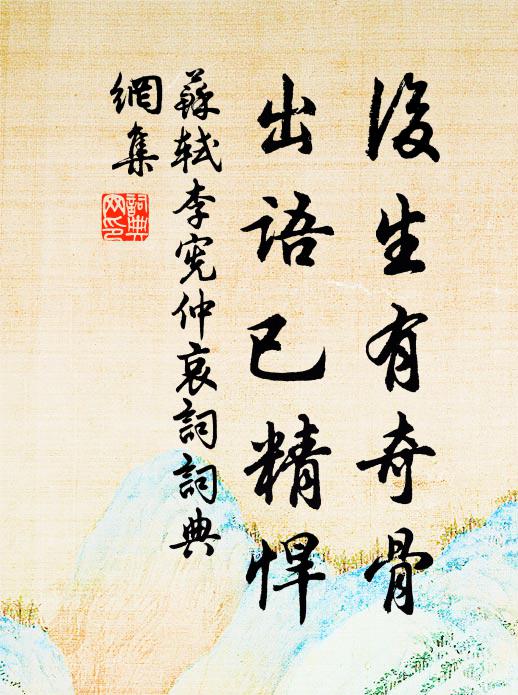 後生有奇骨
出語已精悍
蘇軾李宪仲哀詞詞典
網集
詞典
网印